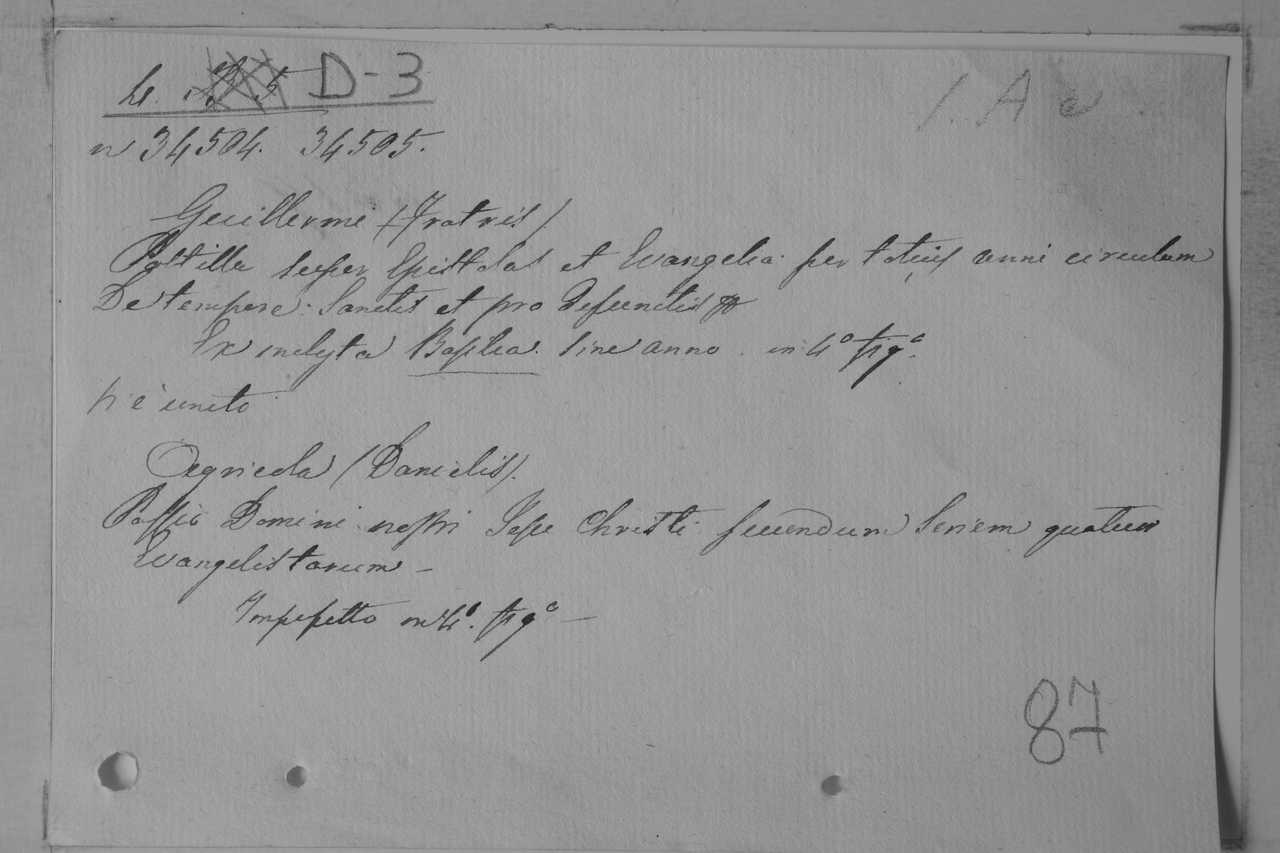 Li. D-3
n 34504. 34505.
1. A
Guillermi (Fratris)
Postilla super Epistolas et Evangelia per totius anni circulum
De tempore: Sanctis et pro Defunctis
Ex inclyta Basilea. Sine anno in 4º fig.ª
vi è unito
Agricola (Danielis).
Passio Domini nostri Jesu Christi secundum Seriem quatuor
Evangelistarum –
Imperfetto in 4º. fig.ª –
87